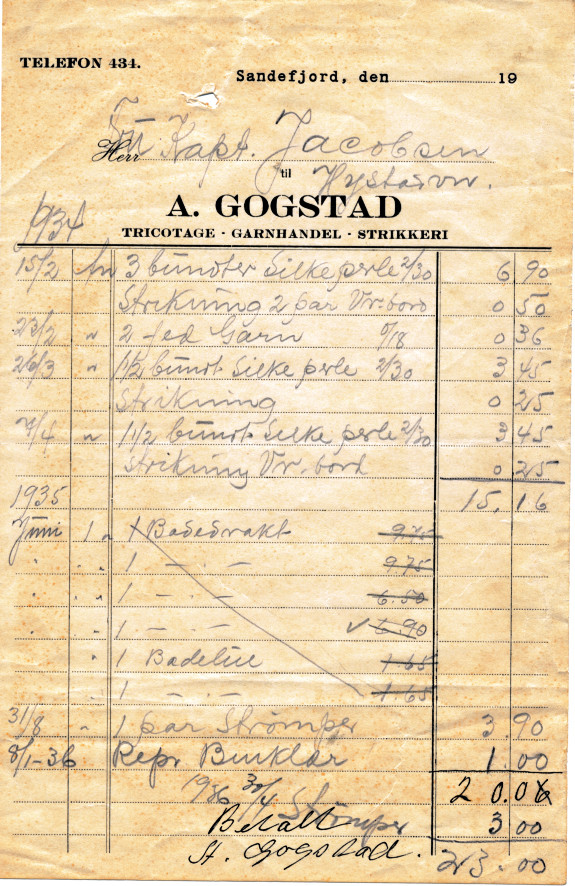 TELEFON 434.
Sandefjord, den 19
Herr Kapt. Jacobsen
til
A. GOGSTAD
TRICOTAGE - GARNHANDEL - STRIKKERI
1934
15/2 3 bundter Silkeperle 2/30 6 90
Strikning 2 par Vr.bord 0 50
23/2 " 2 fed Garn 0/18 0 36
26/3 " 1 1/2 bundt Silkeperle 2/30 3 45
Strikning 0 25
7/4 " 1 1/2 bundt Silkeperle 2/30 3 45
Strikning Vr.bord 0 25
1935 15.16
Juni 1 " 1 Badedrakt 9.75
" " 1 - " - 9.75
" " 1 - " - 6.50
" " 1 - " - ✓ 6.90
" 1 Badelue 1.65
" 1 - " - 1.65
31/8 " 1 par Strømper 3.90
8/1-36 Repr 1.00
1936 30/4 20.06
Strømper 3 00
Betalt
A. Gogstad. 23.00